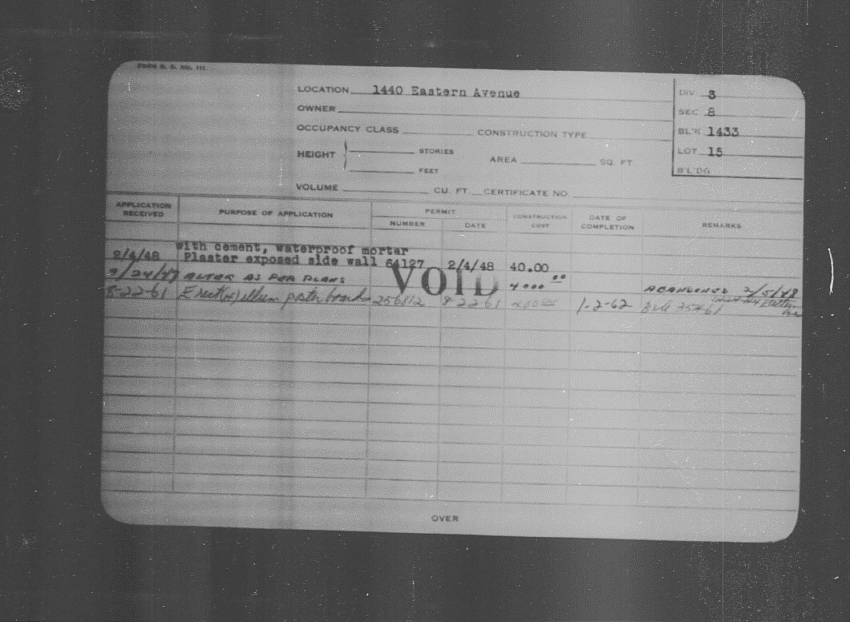 FORM B. D. NO. 111
LOCATION 1440 Eastern Avenue
DIV. 3
OWNER
SEC. 8
OCCUPANCY CLASS CONSTRUCTION TYPE
BL'K 1433
HEIGHT STORIES AREA SQ. FT.
LOT 15
FEET
B'L'DG
VOLUME CU. FT. CERTIFICATE NO.
APPLICATION RECEIVED PURPOSE OF APPLICATION PERMIT NUMBER DATE CONSTRUCTION COST DATE OF COMPLETION REMARKS
with cement, waterproof mortar
2/4/48 Plaster exposed side wall 64127 2/4/48 40.00
9/24/47 ALTER AS PER PLANS VOID 4000 00 ABANDONED 2/5/48
8-22-61 Erect illum poster board 256812 8-22-61 400 1-2-62
OVER